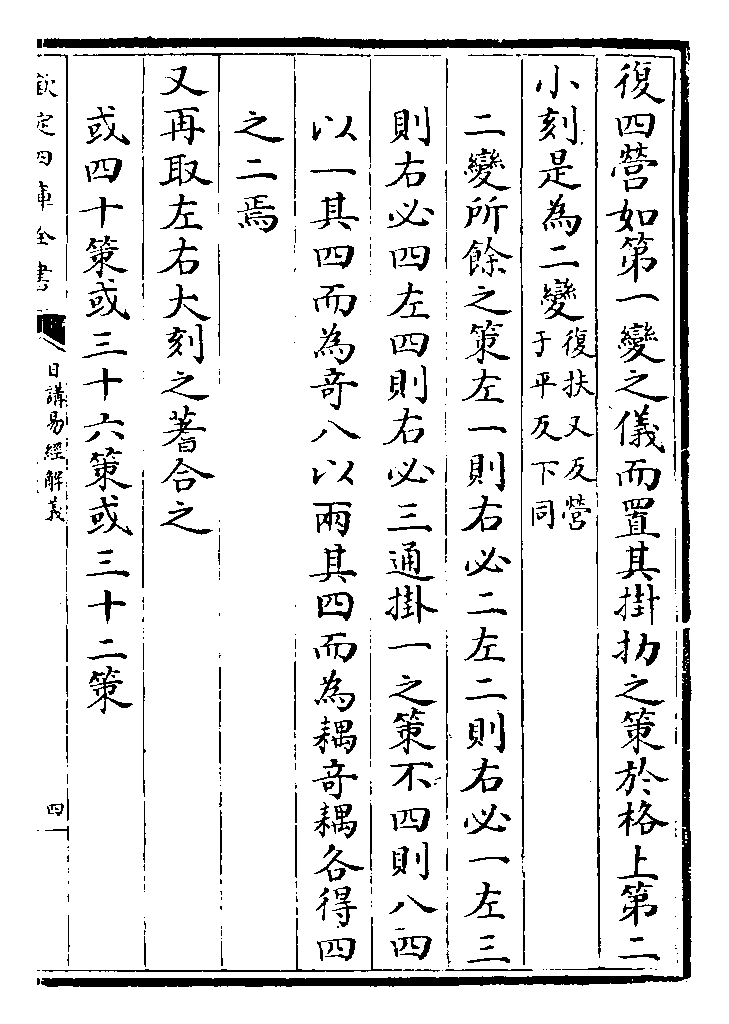 復四營如第一變之儀而置其掛扐之策於格上第二
小刻是為二變復扶又反營于平反下同
二變所餘之策左一則右必二左二則右必一左三
則右必四左四則右必三通掛一之策不四則八四
以一其四而為奇八以兩其四而為耦奇耦各得四
之二焉
又再取左右大刻之蓍合之
或四十策或三十六策或三十二策
欽定四庫全書
日講易經解義
四